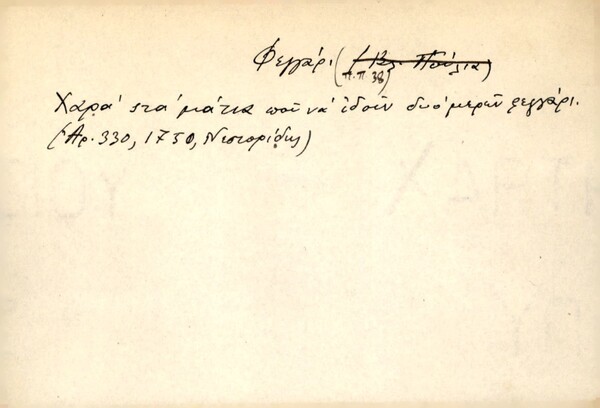 Φεγγάρι (Βλ. Πούλια)
π.π 38)
Χαρα' στα' μάτια ποῦ να' ἰδοῦν δυο' μερῶν φεγγάρι.
(Ἀρ. 330, 1750, Νεστορίδης)